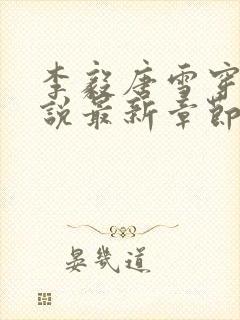 李毅唐雪穿
説最新章節
晏幾道